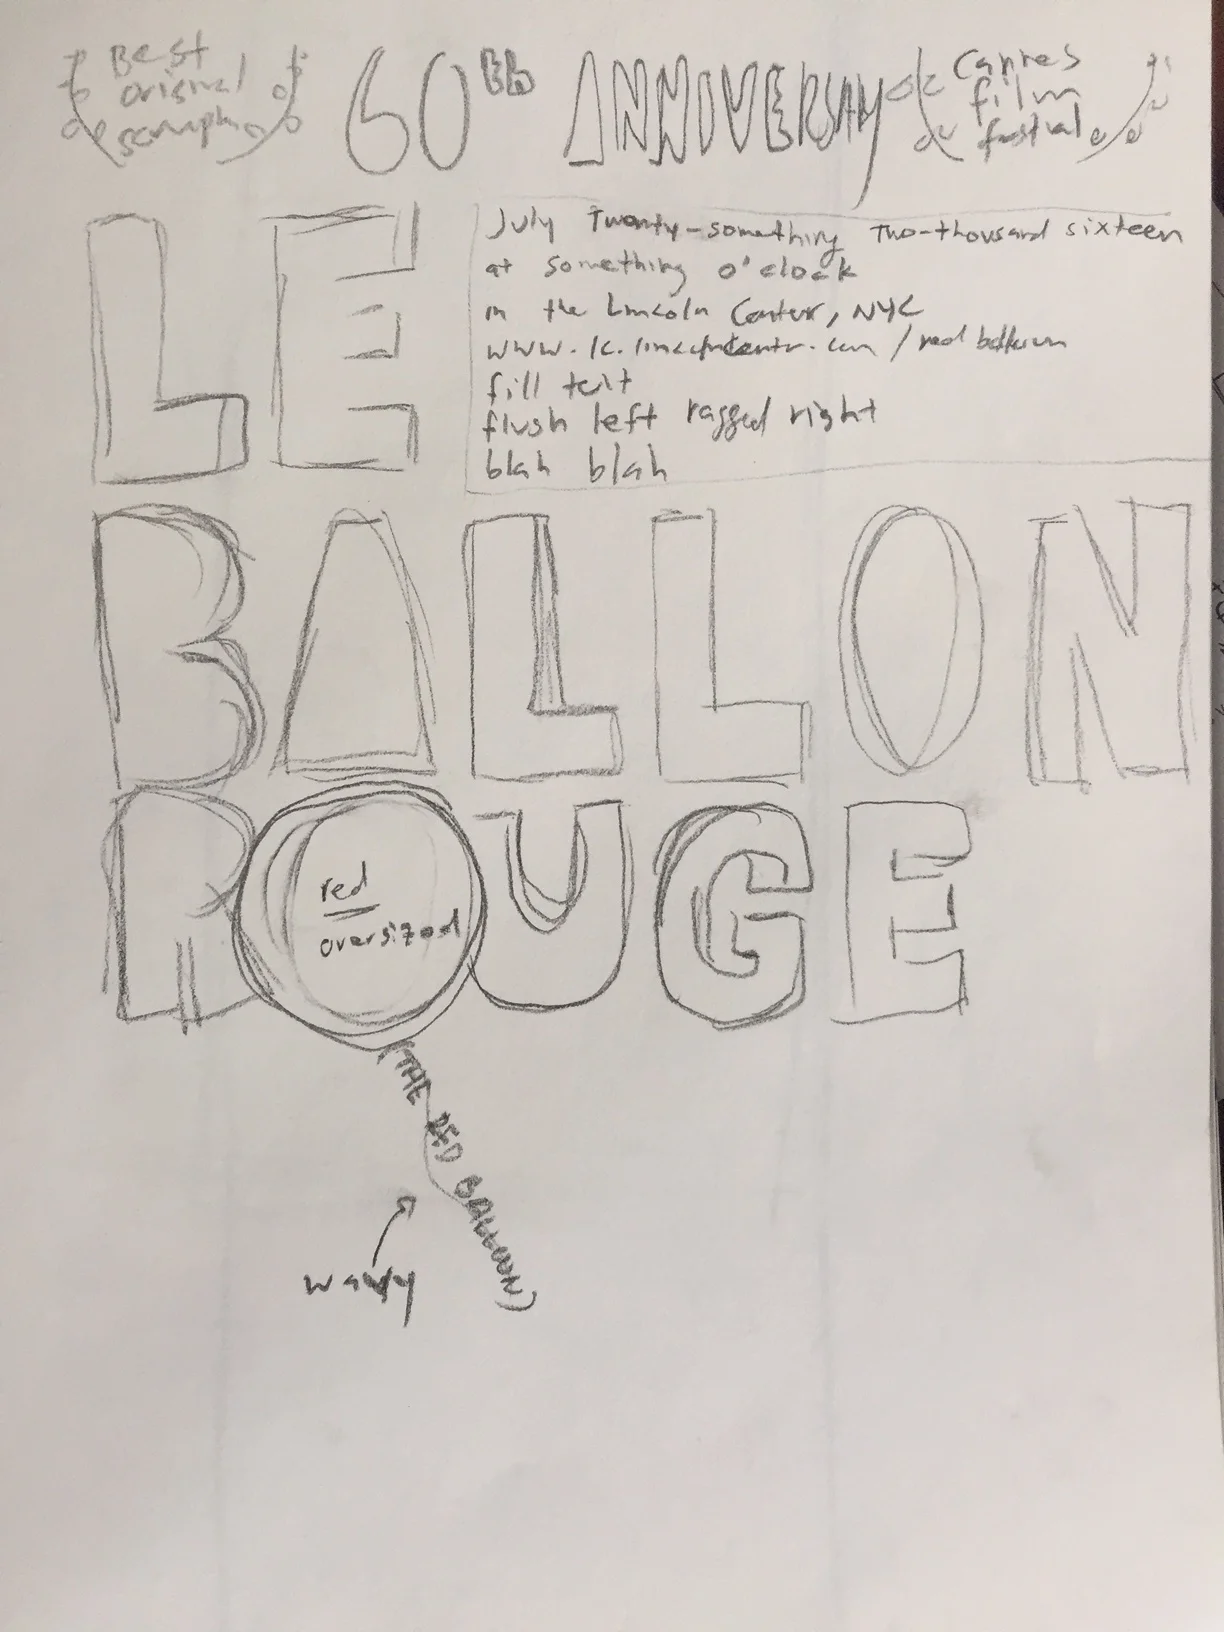 Best
original
60th ANNIVERSARY
Cannes
film
festival
LE
July Twenty-something Two-thousand sixteen
at something o'clock
in the Lincoln Center, NYC
fill text
flush left ragged right
blah blah
BALLON
ROUGE
red
oversized
(THE RED BALLOON)
wavy